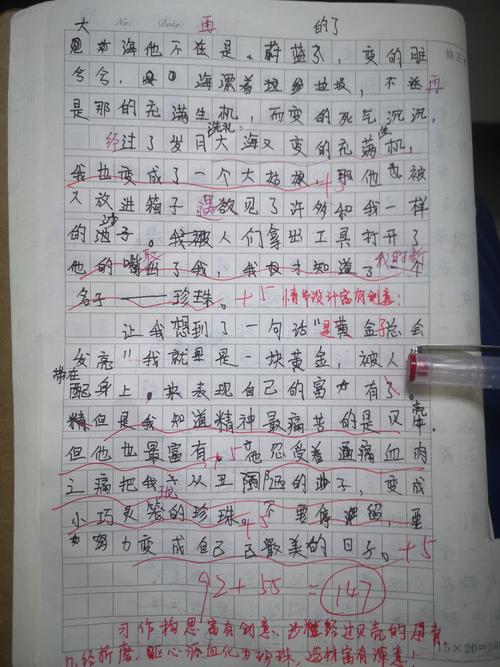 大 No: Date: 再 的了
见 大海他不在是,蔚蓝系,变的脏
兮兮,海漂着垃圾,不在再
是那的充满生机,而变的死气沉沉,
洗礼,
经过了岁月大海又变的充满生机,
我也变成了一个大姑娘,+5 那他也被
人放进箱子遇见了许多和我一样
的沙子。我被人们拿出工具打开了
他的嘴取了我,我才知道了我的新
名子——珍珠。+5 情节设计富有创意!
让我想到了一句话"是黄金子总会
发亮"我就是一块黄金,被人
带在身上。来表现自己的富有。
精但是我知道精神最痛苦的是贝壳
但他也最富有,+5 他忍受着血肉
之痛把我从丑陋的沙子,变成
小巧灵珑的珍珠。+5 不要停留,要
努力变成自己最美的日子。+5
92+55=147
习作构思富有创意,
历经折磨,呕心沥血化为珍珠,选材富有深意!
15×20=300